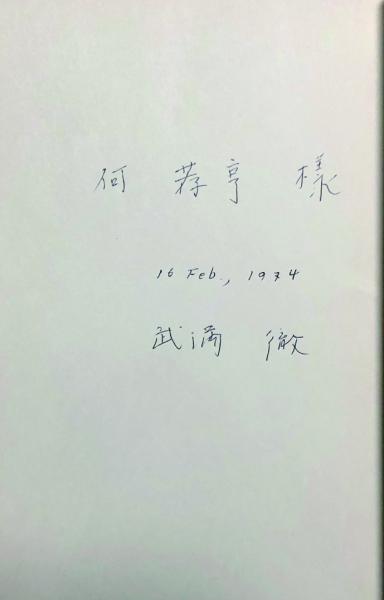 何 荐亨 様
16 Feb., 1974
武満 徹